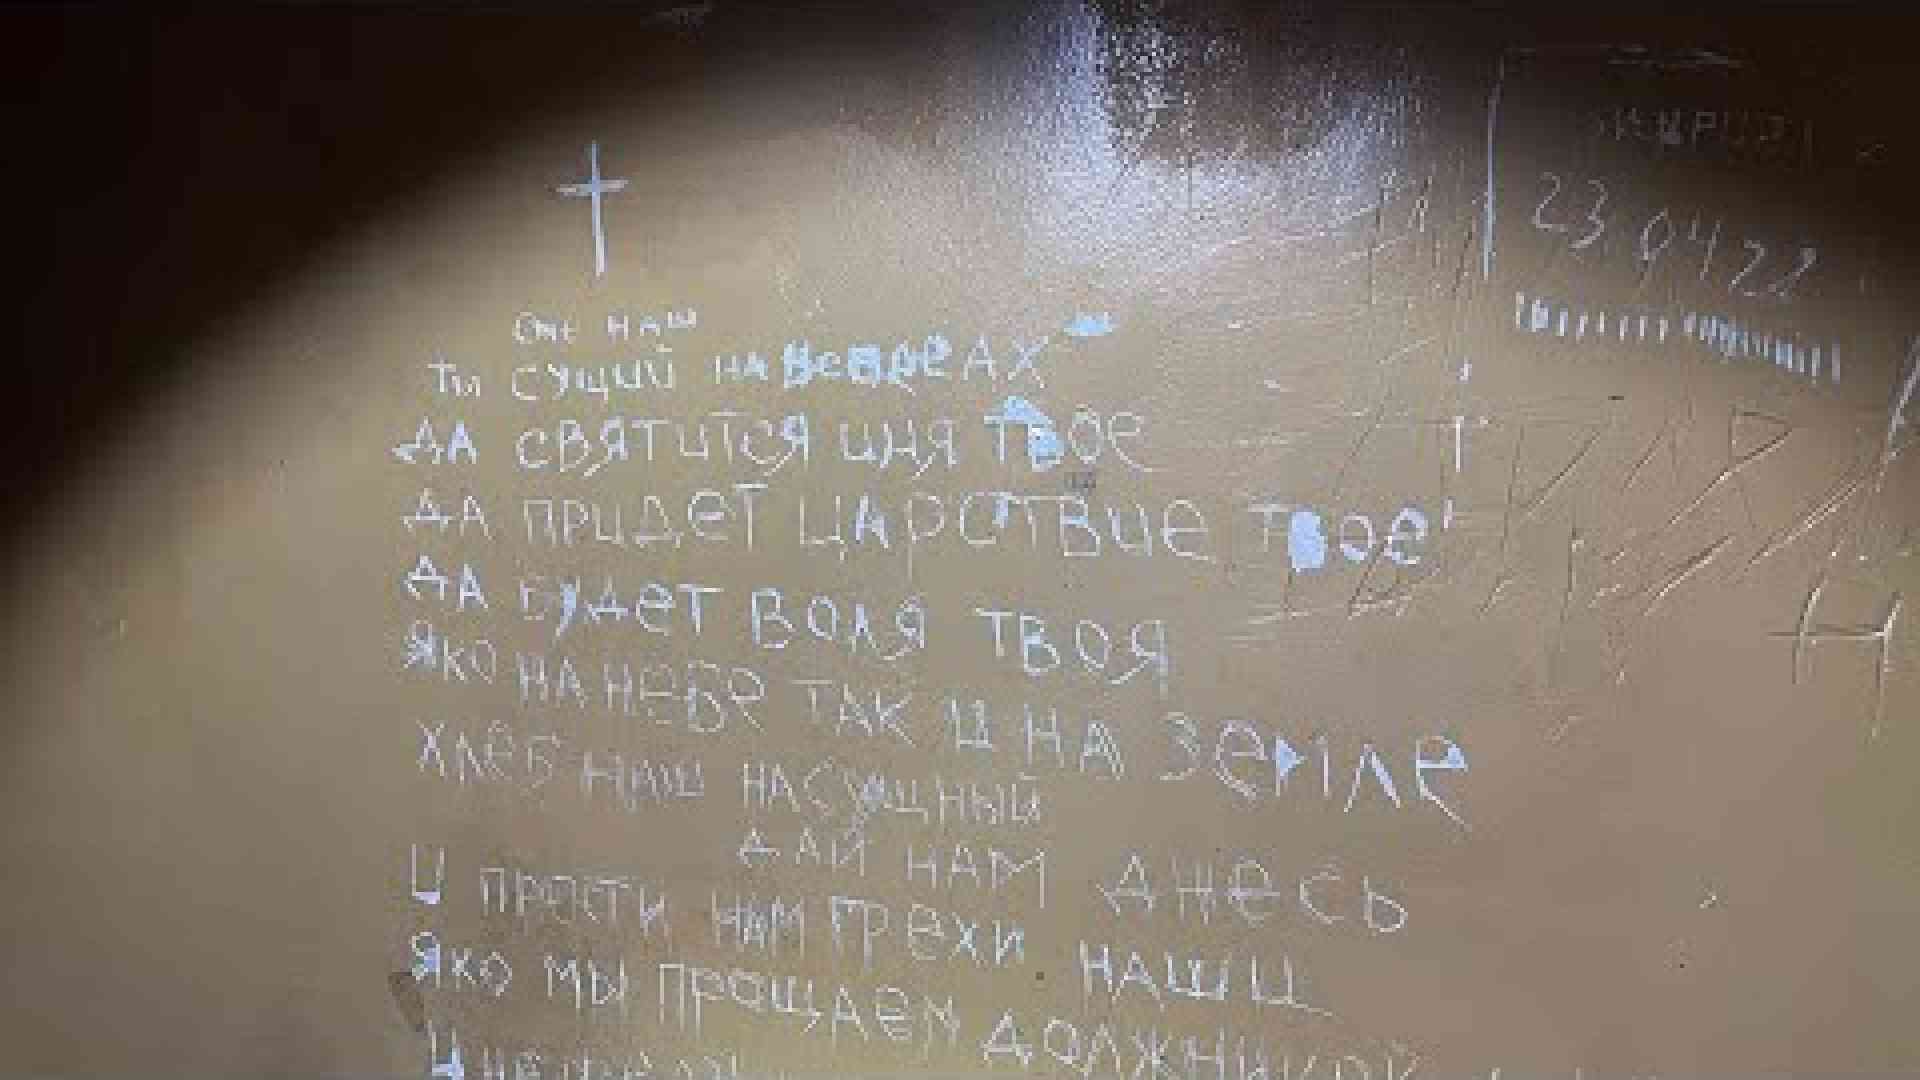 отче наш
ти сущий на небесах
ДА СВЯТИТСЯ ИМЯ ТВОЕ
ДА ПРИДЕТ ЦАРСТВИЕ ТВОЕ
ДА БУДЕТ ВОЛЯ ТВОЯ
ЯКО НА НЕБЕ ТАК И НА ЗЕМЛЕ
ХЛЕБ НАШ НАСУЩНЫЙ
ДАЙ НАМ ДНЕСЬ
И ПРОСТИ НАМ ГРЕХИ НАШИ
ЯКО МЫ ПРОЩАЕМ
23.0422